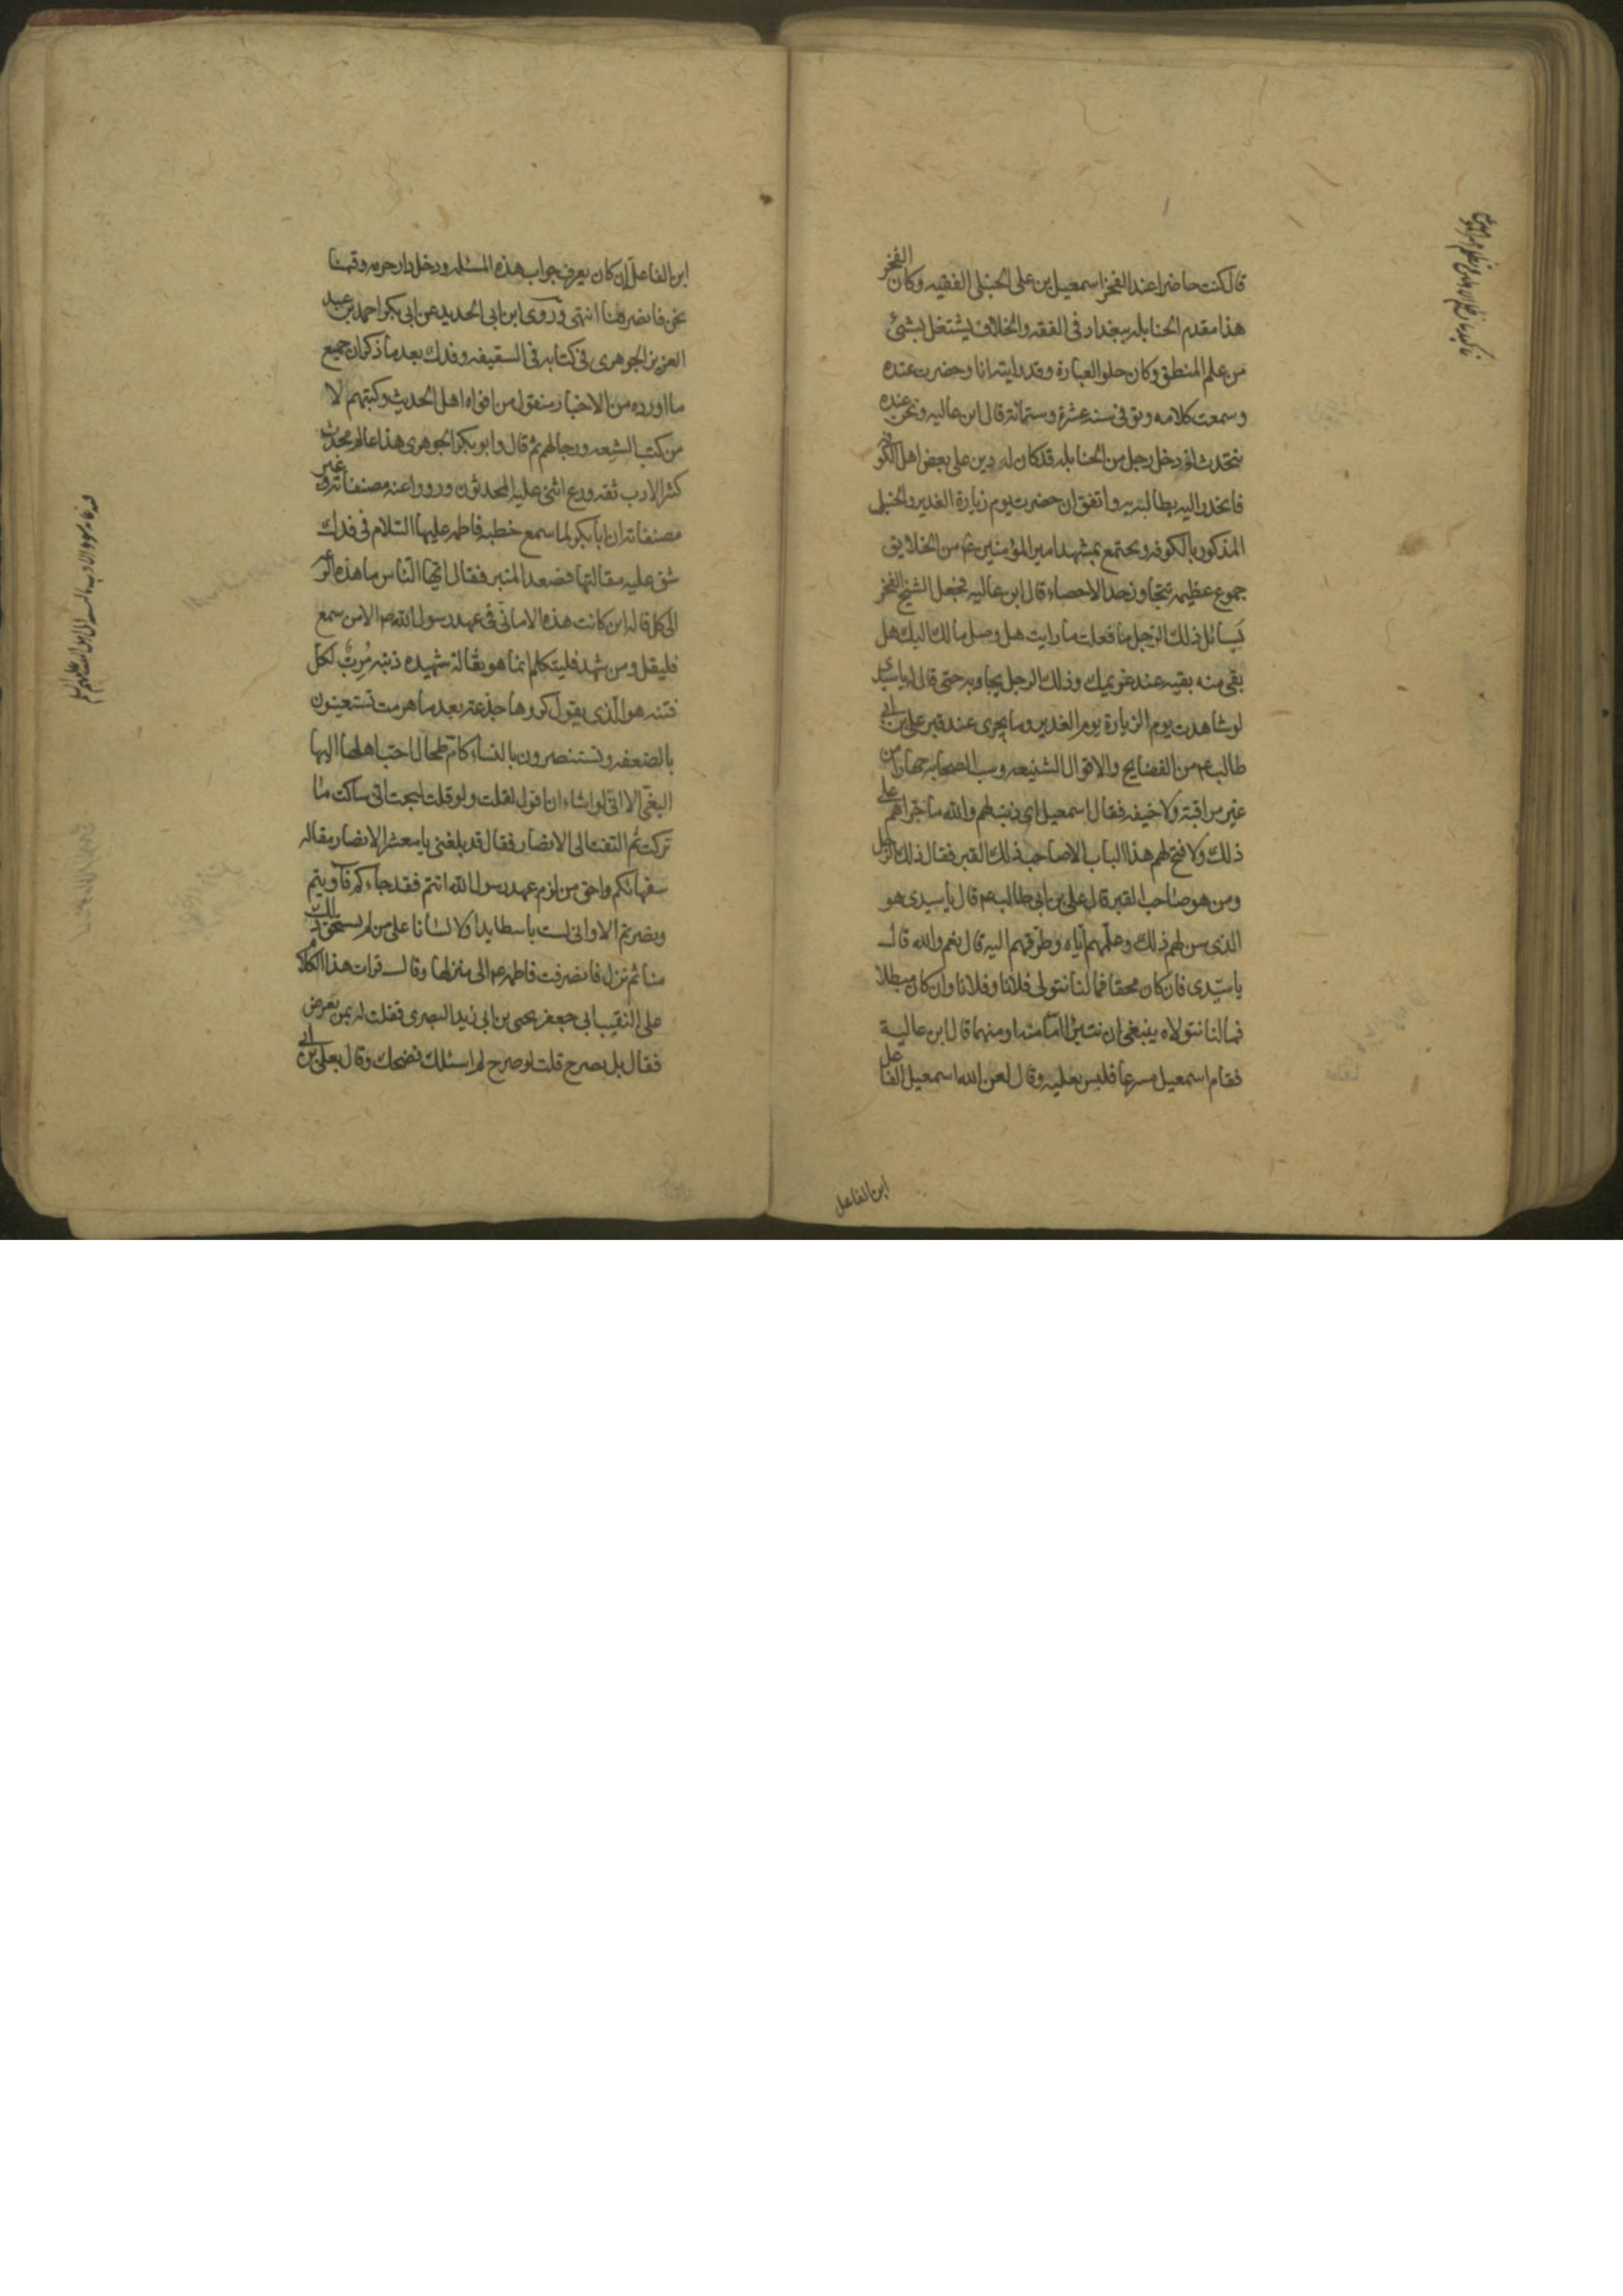 قال كنت حاضرا عند الفخر اسمعيل بن على الحنبلى الفقيه وكان الفخر
هذا مقدم الحنابله ببغداد فى الفقه والخلاف يشتغل بشئ
من علم المنطق وكان حلو العبارة وقد رايته انا وحضرت عنده
وسمعت كلامه وتوفى سنه عشرة وستمائة قال ابن عاليه ونحن عنده
نتحدث اذ دخل رجل من الحنابله قد كان له دين على بعض اهل الكوفه
فانحدر اليه يطالبه به واتفق ان حضرت يوم زيارة الغدير والحنبلى
المذكور بالكوفه ويجتمع بمشهد امير المؤمنين ع من الخلايق
جموع عظيمه تتجاوز حد الاحصاء قال ابن عاليه فجعل الشيخ الفخر
يسائل ذلك الرجل ما فعلت ما رايت هل وصل مالك اليك هل
بقى منه بقيه عند غريمك وذلك الرجل يجاوبه حتى قال له يا سيدى
لو شاهدت يوم الزيارة يوم الغدير وما يجرى عند قبر على بن ابى
طالب ع من الفضايح والاقوال الشنيعه وسب الصحابه جهارا من
غير مراقبة ولا خيفه فقال اسمعيل اى ذنب لهم والله ما جراهم على
ذلك ولا فتح لهم هذا الباب الا صاحب ذلك القبر فقال ذلك الرجل
ومن هو صاحب القبر قال على بن ابى طالب ع قال يا سيدى هو
الذى سن لهم ذلك وعلمهم اياه وطرقهم اليه قال نعم والله قال
يا سيدى فان كان محقا فما لنا نتولى فلانا وفلانا وان كان مبطلا
فما لنا نتولاه ينبغى ان نتبرئ اما منه او منهما قال ابن عالية
فقام اسمعيل مسرعا فلبس نعليه وقال لعن الله اسمعيل الفاعل
ابن الفاعل
ابن الفاعل ان كان يعرف جواب هذه المسئله ودخل دار حرمه وقمنا
نحن فانصرفنا انتهى وروى ابن ابى الحديد عن ابى بكر احمد بن عبد
العزيز الجوهرى فى كتابه فى السقيفه وفدك بعد ما ذكر ان جميع
ما اورده من الاخبار منقول من افواه اهل الحديث وكتبهم لا
من كتب الشيعه ورجالهم ثم قال وابو بكر الجوهرى هذا عالم محدث
كثير الادب ثقه ورع اثنى عليه المحدثون ورووا عنه مصنفاته وغير
مصنفاته ان ابا بكر لما سمع خطبه فاطمه عليها السلام فى فدك
شق عليه مقالتها فصعد المنبر فقال ايها الناس ما هذه الرعه
الى كل قاله اين كانت هذه الامانى فى عهد رسول الله ص الا من سمع
فليقل ومن شهد فليتكلم انما هو ثعالة شهيده ذنبه مرب لكل
فتنه هو الذى يقول كروها جذعة بعد ما هرمت تستعينون
بالضعفه وتستنصرون بالنساء كام طحال احب اهلها اليها
البغى الا انى لو اشاء ان اقول لقلت ولو قلت لبحت انى ساكت ما
تركت ثم التفت الى الانصار فقال قد بلغنى يا معشر الانصار مقاله
سفهائكم واحق من لزم عهد رسول الله انتم فقد جاءكم فآويتم
ونصرتم الا وانى لست باسطا يدا ولا لسانا على من لم يستحق ذلك
منا ثم نزل فانصرفت فاطمه ع الى منزلها وقال قرات هذا الكلام
على النقيب ابى جعفر يحيى بن ابى زيد البصرى فقلت له بمن يعرض
فقال بل يصرح قلت لو صرح لم اسئلك فضحك وقال بعلى بن ابى